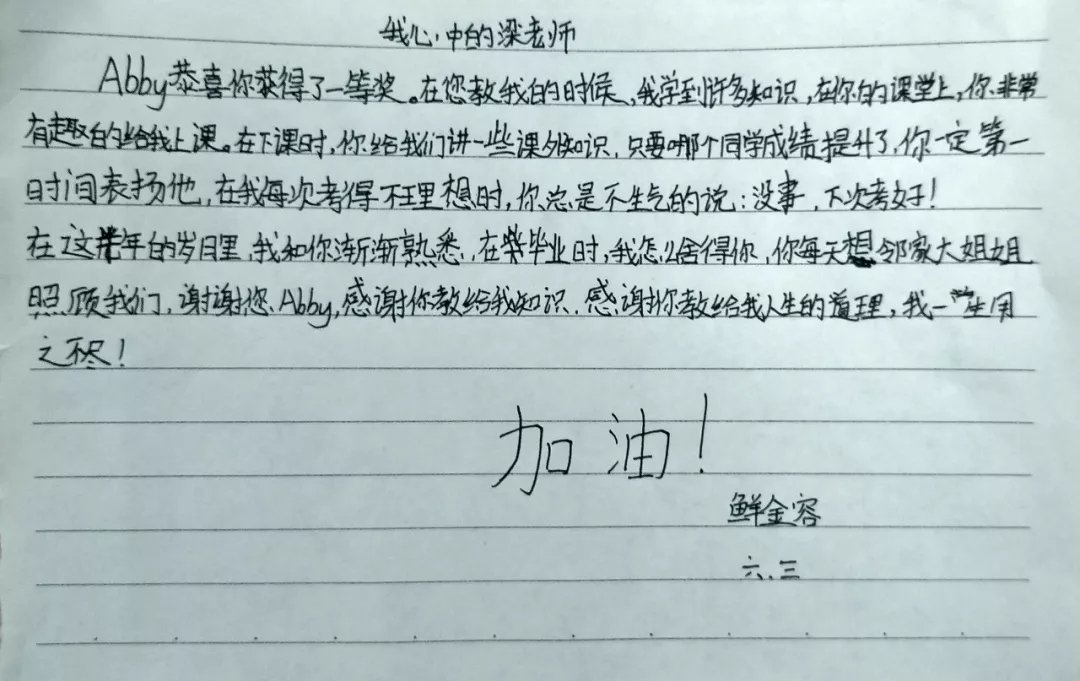 我心中的梁老师
Abby恭喜你获得了一等奖。在您教我的时候,我学到许多知识,在你的课堂上,你非常
有趣的给我上课。在下课时,你给我们讲一些课外知识,只要哪个同学成绩提升了,你一定第一
时间表扬他,在我每次考得不理想时,你总是不生气的说:没事,下次考好!
在这半年的岁月里,我和你渐渐熟悉,在毕业时,我怎么舍得你,你每天想邻家大姐姐
照顾我们,谢谢您,Abby,感谢你教给我知识,感谢你教给我人生的道理,我一生用
之不尽!
加油!
鲜金容
六.三